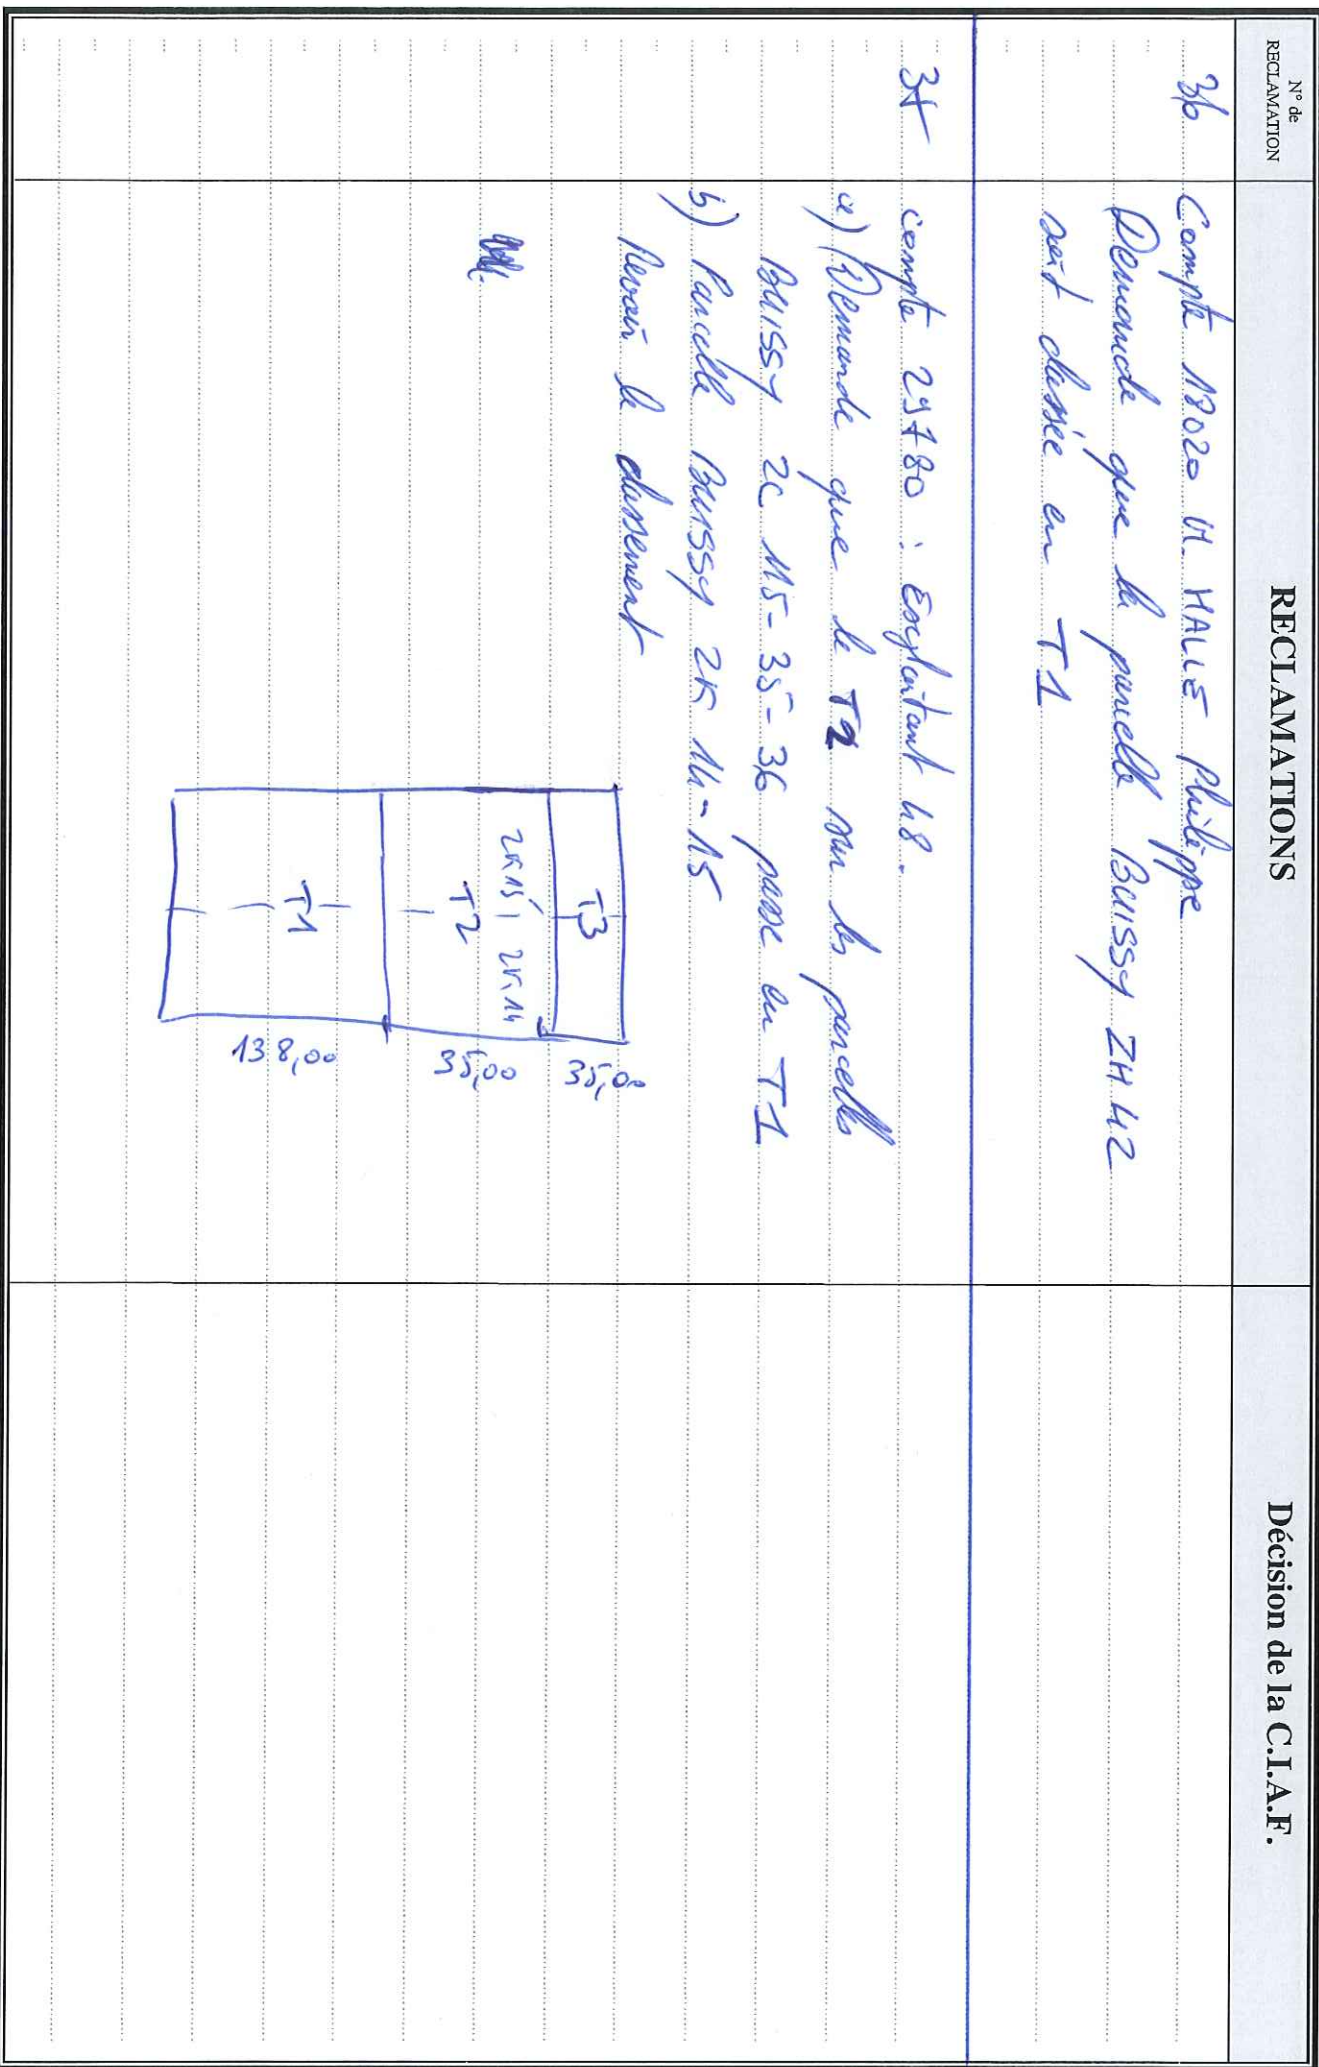 N° de
RECLAMATION
RECLAMATIONS
Décision de la C.I.A.F.
36
Compte 18020 M. HALLE Philippe
Demande que la parcelle BUISSY ZH 42
soit classée en T1
37
compte 29780 : Exploitant 48.
a) Demande que le T2 sur les parcelles
BUISSY ZC 115-35-36 passe en T1
b) Parcelle BUISSY ZK 14-15
Revoir le classement
T3
35,00
ZK15 ZK14
T2
35,00
T1
138,00